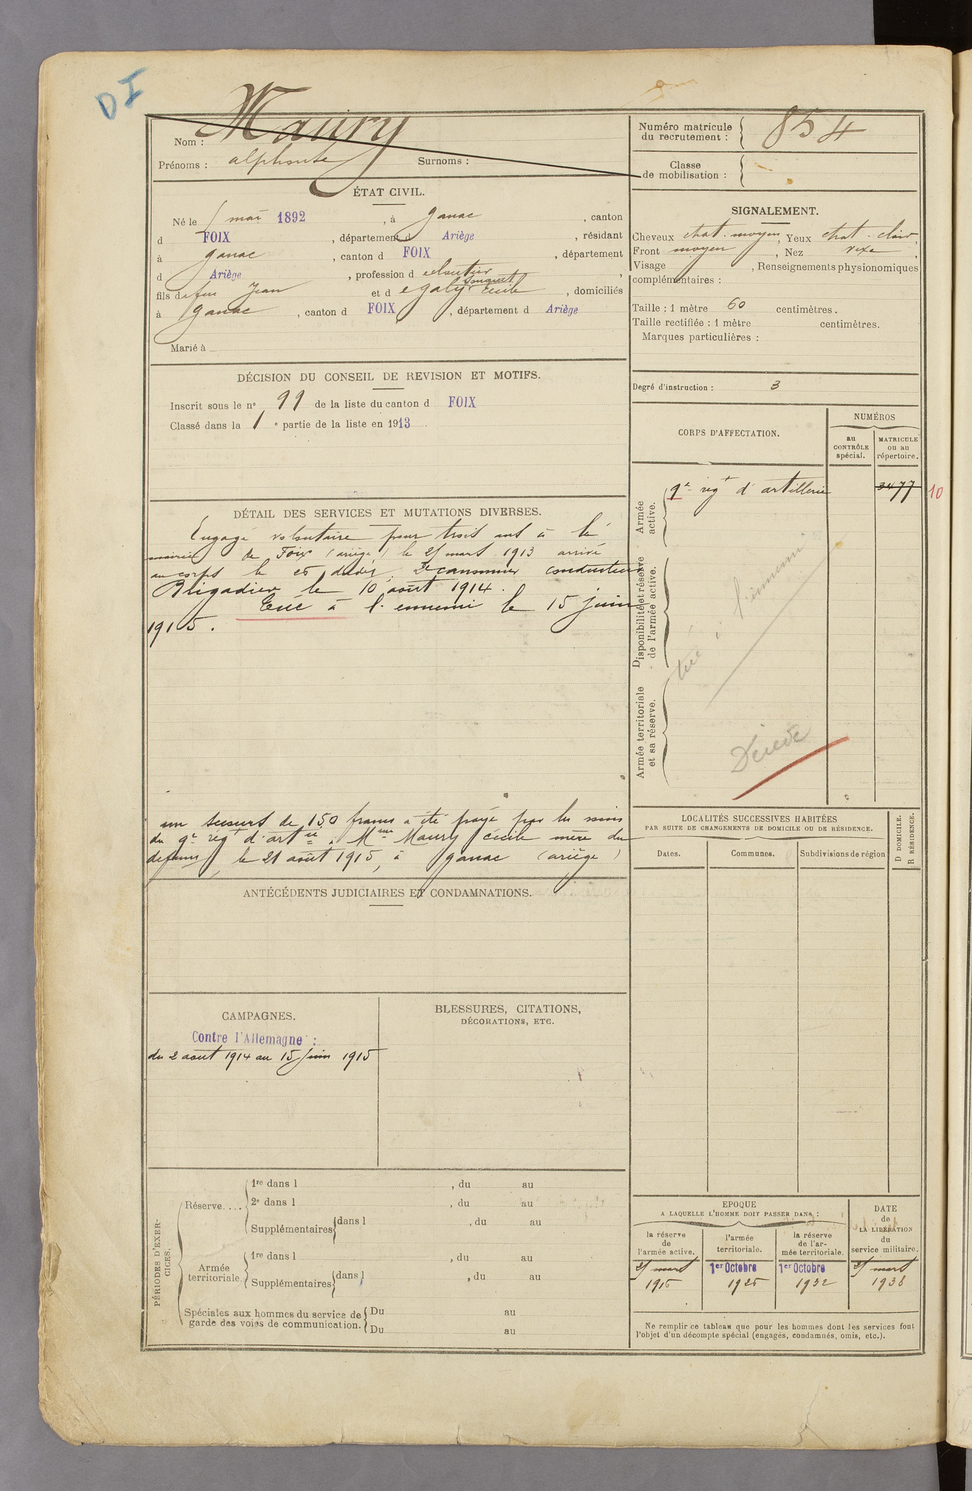 DI
Nom : Maury
Prénoms : alphonse Surnoms :
Numéro matricule du recrutement : 854
Classe de mobilisation :
ÉTAT CIVIL.
Né le mai 1892, à Ganac, canton
d FOIX, département d Ariège, résidant
à ganac, canton d FOIX, département
d Ariège, profession d
fils de feu Jean et d egaly Cécile, domiciliés
à ganac, canton d FOIX, département d Ariège
Marié à
SIGNALEMENT.
Cheveux chat. moyen, Yeux chat. clair,
Front moyen, Nez
Visage , Renseignements physionomiques
complémentaires :
Taille : 1 mètre 60 centimètres.
Taille rectifiée : 1 mètre centimètres.
Marques particulières :
Degré d'instruction : 3
DÉCISION DU CONSEIL DE REVISION ET MOTIFS.
Inscrit sous le nº 99 de la liste du canton d FOIX
Classé dans la 1 e partie de la liste en 1913
CORPS D'AFFECTATION.
NUMÉROS
au CONTRÔLE spécial.
MATRICULE ou au répertoire.
Armée active.
9e regt d'artillerie 3477 10
Disponibilité et réserve de l'armée active.
tué à l'ennemi
Armée territoriale et sa réserve.
DÉTAIL DES SERVICES ET MUTATIONS DIVERSES.
Engagé volontaire pour trois ans à la
mairie de Foix (ariège) le 25 mars 1913 arrivé
au corps le 25 dudit, 2e canonnier conducteur
Brigadier le 10 août 1914.
Tué à l'ennemi le 15 juin
1915.
un secours de 150 francs a été payé par les soins
du 9e rég d'artie à Mme Maury Cécile mère du
défunt, le 21 août 1915, à ganac (ariège)
ANTÉCÉDENTS JUDICIAIRES ET CONDAMNATIONS.
LOCALITÉS SUCCESSIVES HABITÉES
PAR SUITE DE CHANGEMENTS DE DOMICILE OU DE RÉSIDENCE.
Dates. Communes. Subdivisions de région
D DOMICILE. R RÉSIDENCE.
CAMPAGNES.
Contre l'Allemagne :
du 2 août 1914 au 15 juin 1915
BLESSURES, CITATIONS,
DÉCORATIONS, ETC.
PÉRIODES D'EXERCICES.
Réserve....
1re dans l , du au
2e dans l , du au
Supplémentaires dans l , du au
Armée territoriale
1re dans l , du au
Supplémentaires dans l , du au
Spéciales aux hommes du service de garde des voies de communication.
Du au
Du au
EPOQUE
A LAQUELLE L'HOMME DOIT PASSER DANS :
la réserve de l'armée active.
l'armée territoriale.
la réserve de l'armée territoriale.
DATE de LA LIBÉRATION du service militaire.
25 mars 1916
1er Octobre 1925
1er Octobre 1932
25 mars 1938
Ne remplir ce tableau que pour les hommes dont les services font
l'objet d'un décompte spécial (engagés, condamnés, omis, etc.).